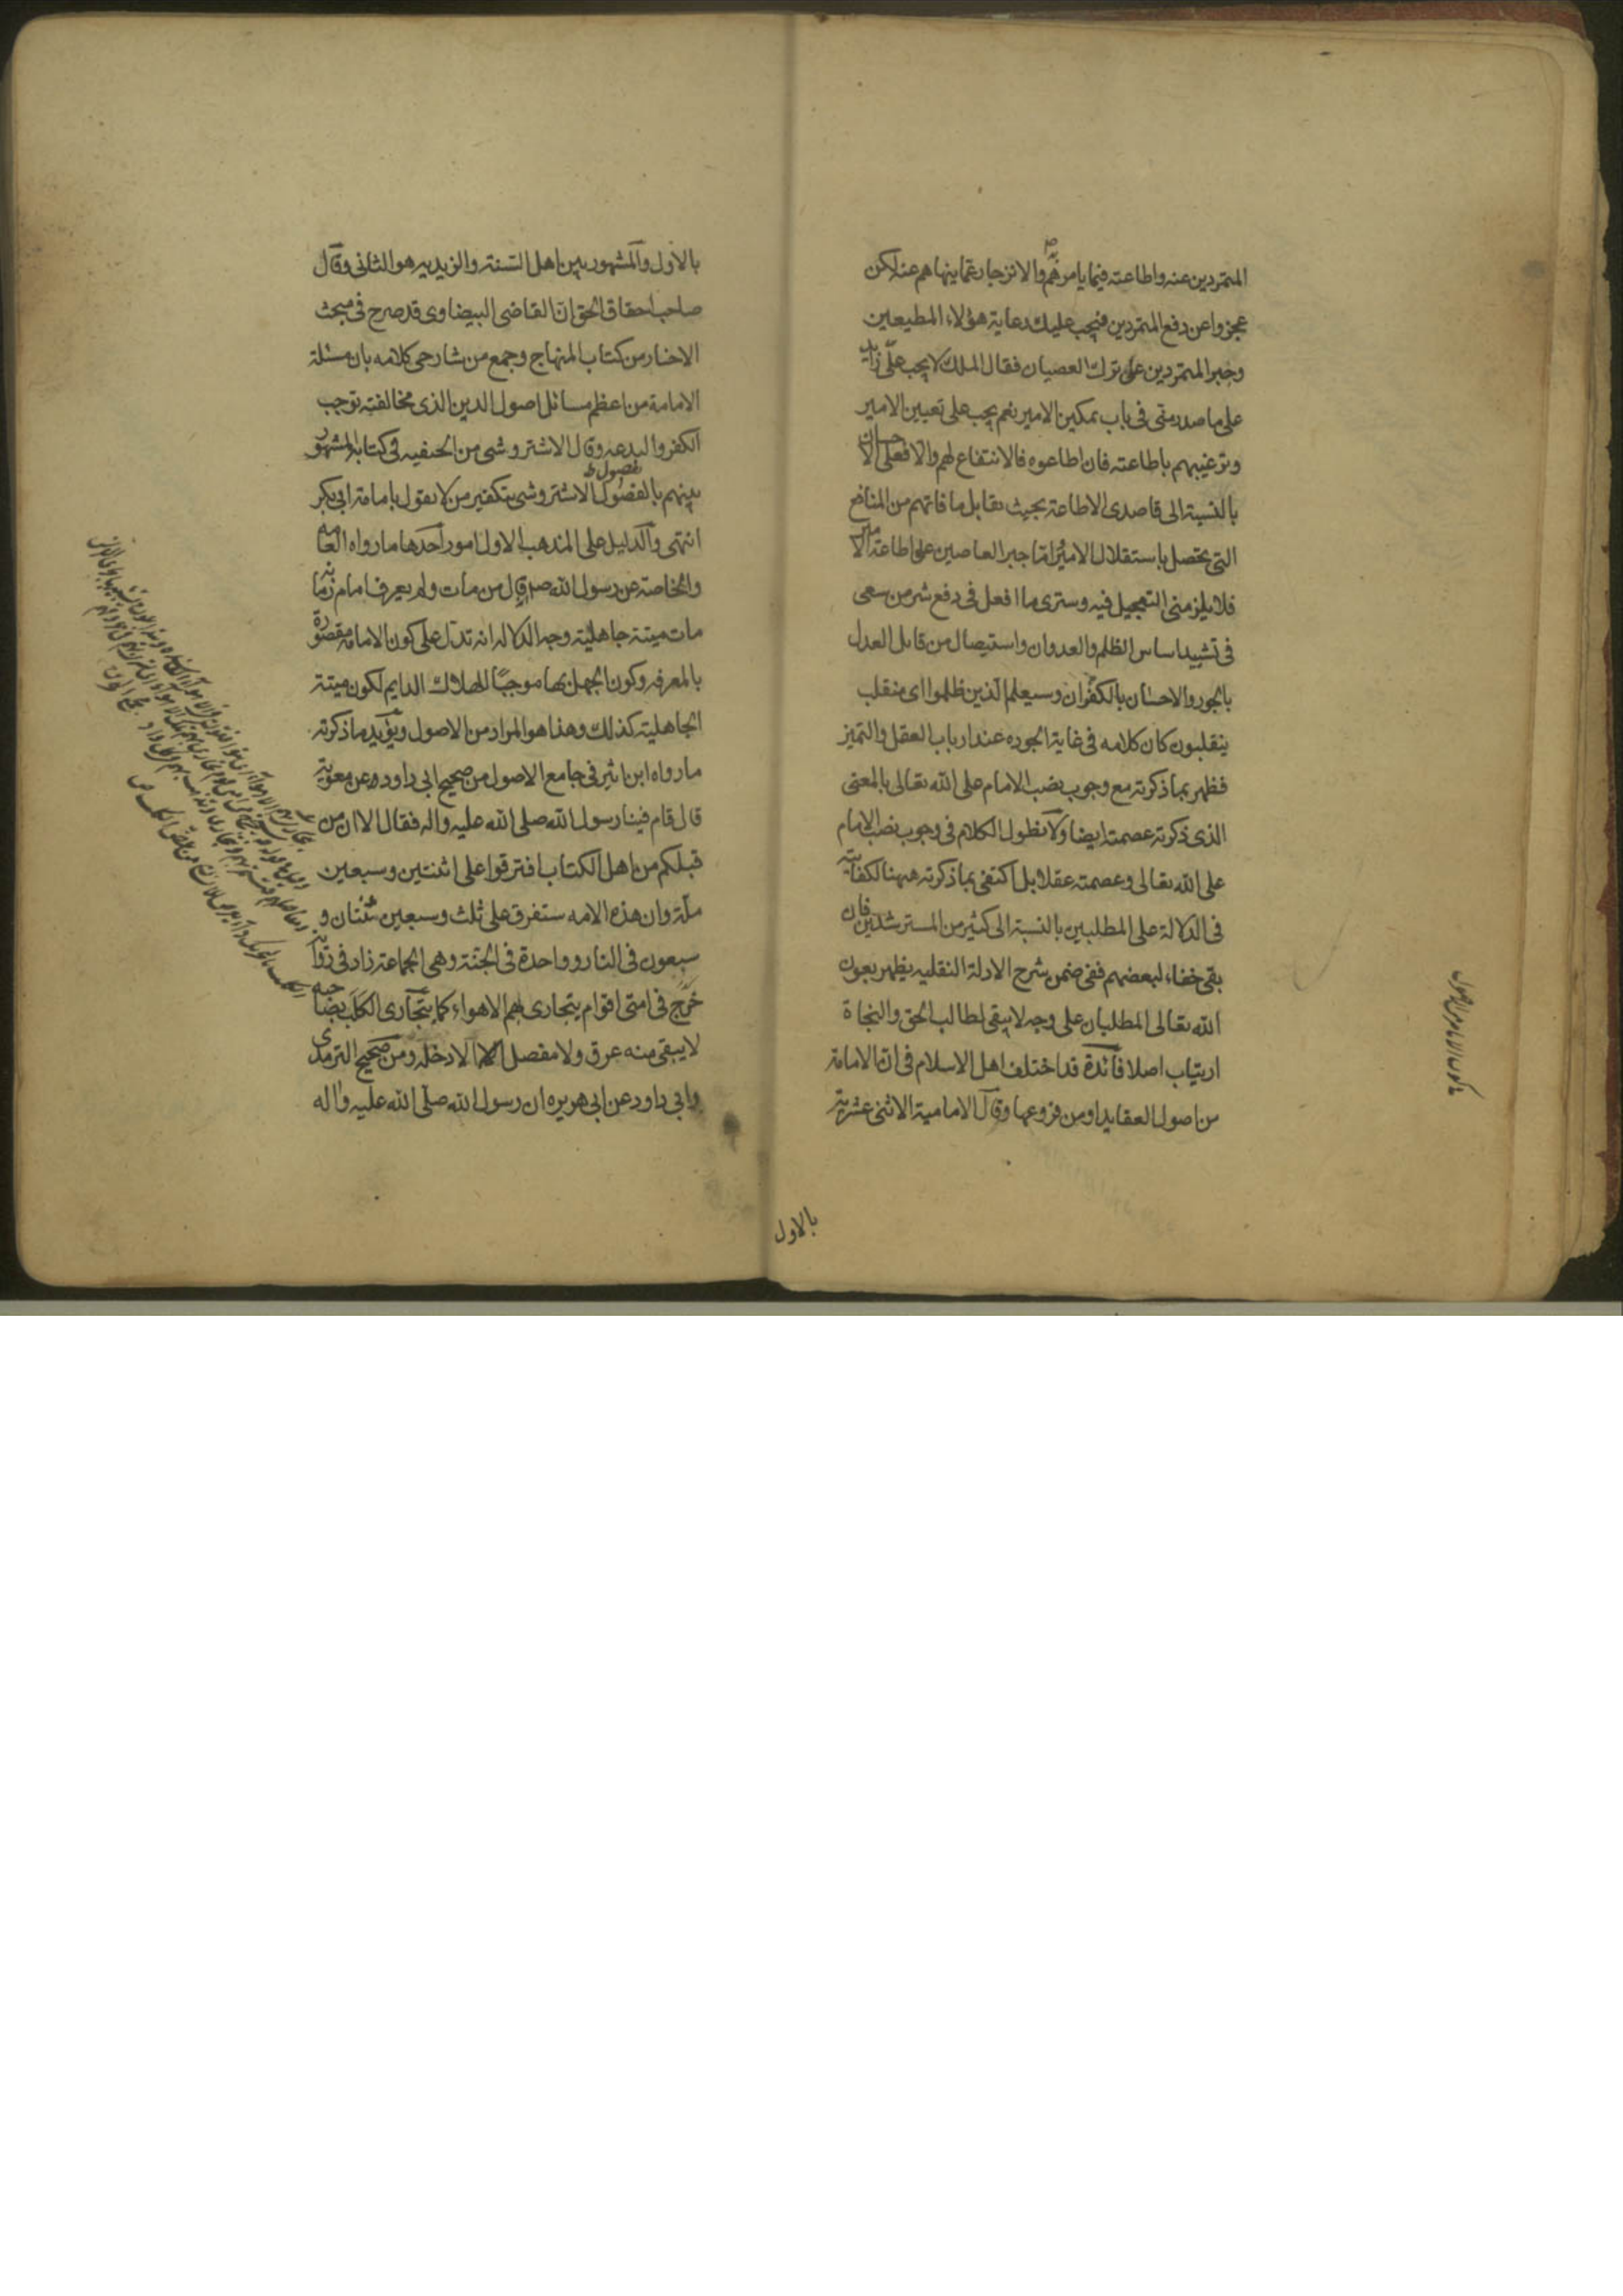 المتمردين عنه واطاعته فيما يامرهم والانزجار عما ينهاهم عنه لكن
عجزوا عن دفع المتمردين فيجب عليك رعاية هؤلاء المطيعين
وجبر المتمردين على ترك العصيان فقال الملك لا يجب علىّ زايد
على ما صدر منى فى باب تمكين الامير نعم يجب على تعيين الامير
وترغيبهم باطاعته فان اطاعوه فالانتفاع لهم والا فعلى الاحسان
بالنسبة الى قاصدى الاطاعة بحيث يقابل ما فاتهم من المنافع
التى يحصل باستقلال الامير اما جبر العاصين على اطاعة الامير
فلا يلزمنى التعجيل فيه وسترى ما افعل فى دفع شر من سعى
فى تشييد اساس الظلم والعدوان واستيصال من قابل العدل
بالجور والاحسان بالكفران وسيعلم الذين ظلموا اى منقلب
ينقلبون كان كلامه فى غاية الجوده عند ارباب العقل والتميز
فظهر بما ذكرته مع وجوب نصب الامام على الله تعالى بالمعنى
الذى ذكرته عصمته ايضا ولا نطول الكلام فى وجوب نصب الامام
على الله تعالى وعصمته عقلا بل اكتفى بما ذكرته ههنا لكفايته
فى الدلالة على المطلبين بالنسبة الى كثير من المسترشدين فان
بقى خفاء لبعضهم ففى ضمن شرح الادلة النقليه يظهر بعون
الله تعالى المطلبان على وجه لا يبقى لطالب الحق والنجاة
ارتياب اصلا فائدة قد اختلف اهل الاسلام فى ان الامامة
من اصول العقايد او من فروعها وقال الامامية الاثنى عشرية
بالاول
بالاول والمشهور بين اهل السنة والزيديه هو الثانى وقال
صاحب احقاق الحق ان القاضى البيضاوى قد صرح فى مبحث
الاخبار من كتاب المنهاج وجمع من شارحى كلامه بان مسئلة
الامامة من اعظم مسائل اصول الدين الذى مخالفته توجب
الكفر والبدعه وقال الاشتروشى من الحنفيه فى كتابه المشهور
بينهم بالفصول الاشتروشى بتكفير من لا يقول بامامة ابى بكر
انتهى والدليل على المذهب الاول امور احدها ما رواه العامه
والخاصة عن رسول الله ص قال من مات ولم يعرف امام زمانه
مات ميتة جاهلية وجه الدلاله انه تدل على كون الامامة مقصورة
بالمعرفه وكون الجهل بها موجبًا للهلاك الدايم لكون ميتة
الجاهلية كذلك وهذا هو المراد من الاصول ويؤيد ما ذكرته
ما رواه ابن اثير فى جامع الاصول من صحيح ابى داود عن معوية
قال قام فينا رسول الله صلى الله عليه واله فقال الا ان من
قبلكم من اهل الكتاب افترقوا على اثنتين وسبعين
ملة وان هذه الامه ستفرق على ثلث وسبعين ثنتان و
سبعون فى النار وواحدة فى الجنة وهى الجماعة زاد فى رواية
خرج فى امتى اقوام يتجارى بهم الاهواء كما يتجارى الكلب بصاحبه
لا يبقى منه عرق ولا مفصل الا دخله ومن صحيح الترمذى
وابى داود عن ابى هريره ان رسول الله صلى الله عليه واله